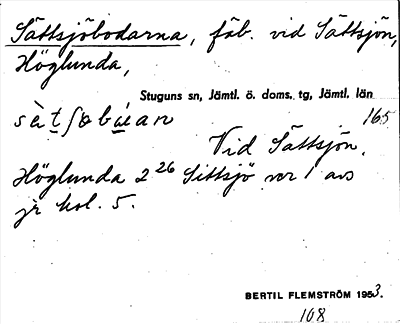 Sättsjöbodarna, fäb. vid Sättsjön,
Höglunda,
Stuguns sn, Jämtl. ö. doms. tg, Jämtl. län
165
Vid Sättsjön.
Höglunda 2 26 Sittsjö
jr kol. 5.
BERTIL FLEMSTRÖM 1953.
168